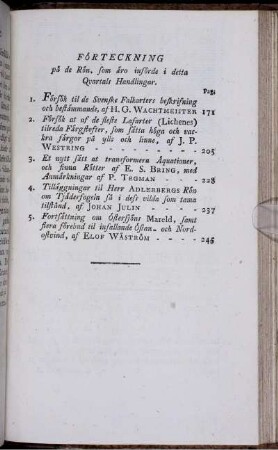 FÖRTECKNING
på de Rön, som äro införde i detta
Quartals Handlingar.
Pag.
1. Försök til de Svenske Falkarters beskrifning
och bestämmande, af H. G. WACHTMEISTER 171
2. Försök at af de fleste Lafarter (Lichenes)
tilreda Färgstofter, som sätta höga och vac-
kra färgor på ylle och linne, af J. P.
WESTRING - - - - - - - - 205
3. Et nytt sätt at transformera Æquationer,
och finna Rötter af E. S. BRING, med
Anmärkningar af P. TEGMAN - - - 228
4. Tilläggningar til Herr ADLERBERGS Rön
om Tjäderfogeln så i dess vilda som tama
tilstånd, af JOHAN JULIN - - - - 237
5. Fortsättning om Östersjöns Mareld, samt
flera förebud til infallande Östan- och Nord-
ostvind, af ELOF WÄSTRÖM - - - 246